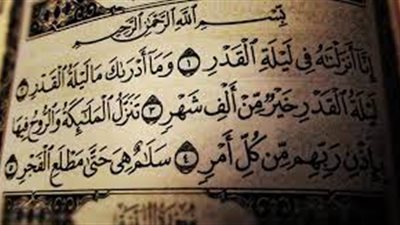 بِسْمِ اللَّهِ الرَّحْمَٰنِ الرَّحِيمِ
إِنَّا أَنزَلْنَاهُ فِي لَيْلَةِ الْقَدْرِ ١ وَمَا أَدْرَاكَ مَا لَيْلَةُ الْقَدْرِ ٢
لَيْلَةُ الْقَدْرِ خَيْرٌ مِّنْ أَلْفِ شَهْرٍ ٣ تَنَزَّلُ الْمَلَائِكَةُ وَالرُّوحُ فِيهَا
بِإِذْنِ رَبِّهِم مِّن كُلِّ أَمْرٍ ٤ سَلَامٌ هِيَ حَتَّىٰ مَطْلَعِ الْفَجْرِ ٥